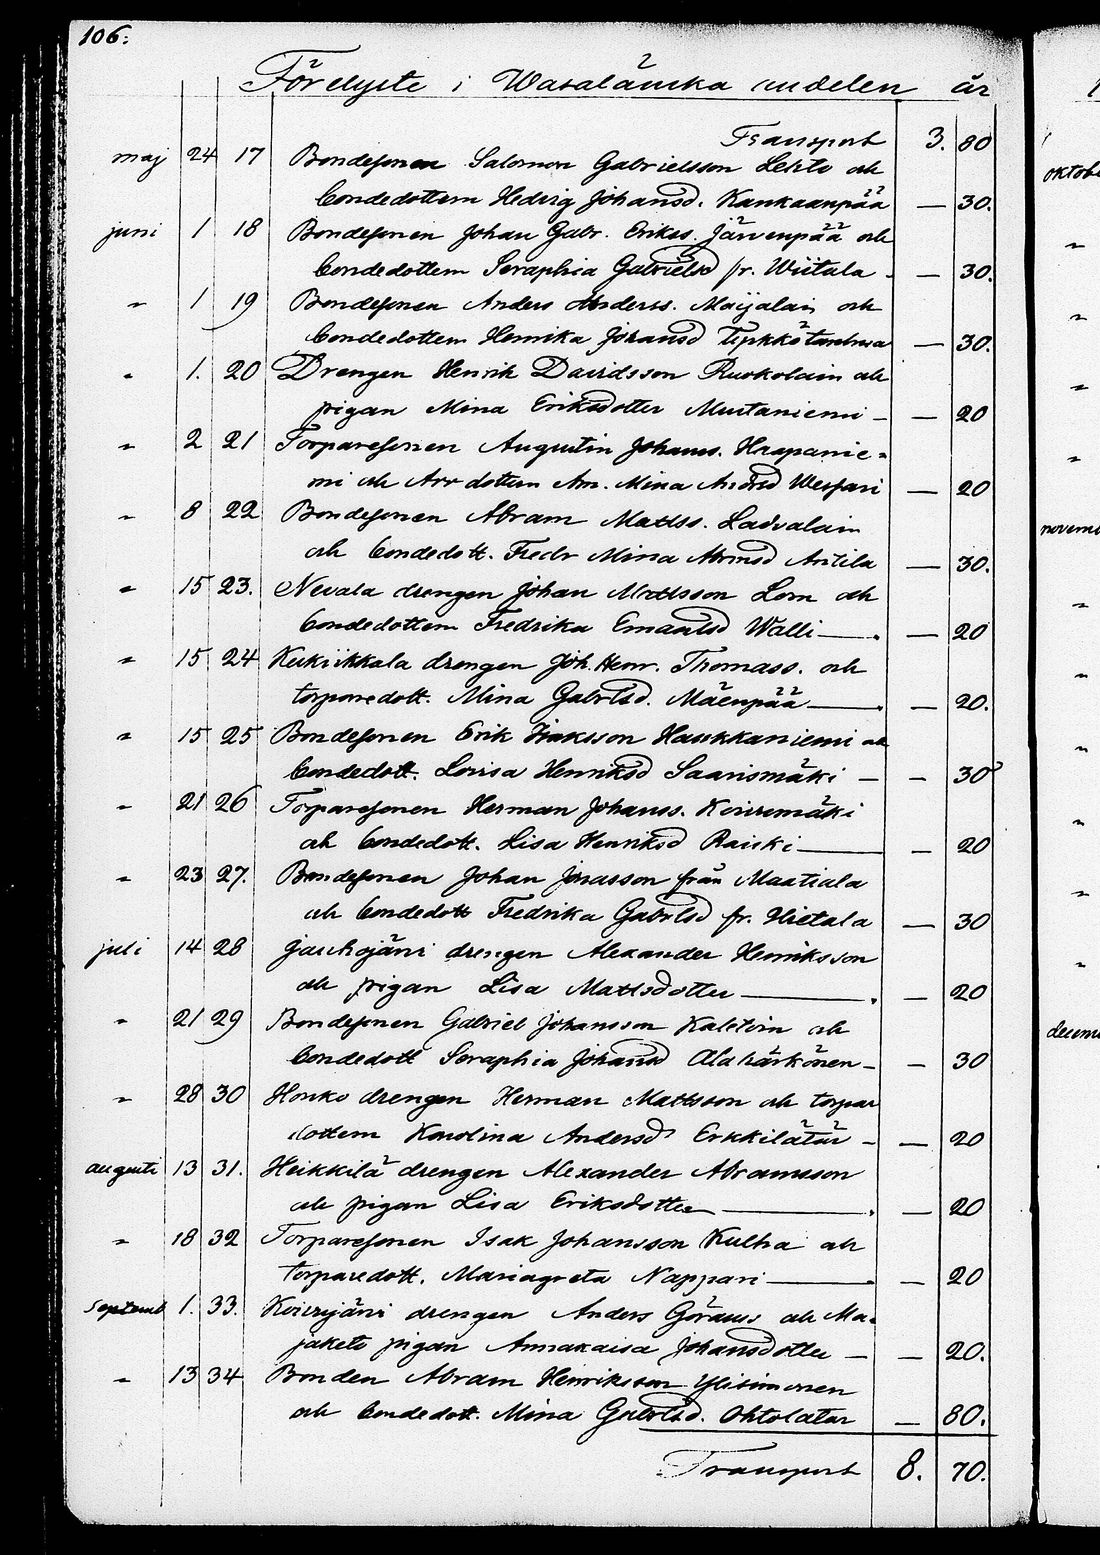 106.
Förelyste i Wasalänska andelen år
Transport 3. 80
maj 24 17 Bondesonen Salomon Gabrielsson Lehto och
bondedottern Hedvig Johansd. Kankaanpää — 30.
juni 1 18 Bondesonen Johan Gabr. Erikss. Järvenpää och
bondedottern Seraphia Gabrielsd fr. Wiitala — 30.
" 1 19 Bondesonen Anders Anderss. Maijalain och
bondedottern Henrika Johansd — 30.
" 1. 20 Drengen Henrik Davidsson Ruokolain och
pigan Mina Eriksdotter Mustaniemi — 20
" 2 21 Torparesonen Augustin Johanss. Haapanie-
mi och dottern An. Mina Andrsd — 20
" 8 22 Bondesonen Abram Mattss. Ladvalain
och bondedott. Fredr Mina Abrmsd Antila — 30.
" 15 23. Nevala drengen Johan Mattsson Lom och
bondedottern Fredrika Emanlsd Walli — 20
" 15 24 Kukikkala drengen Joh. Henr. Thomass. och
torparedott. Mina Gabrlsd. Mäenpää — 20.
" 15 25 Bondesonen Erik Isaksson Haukkaniemi och
bondedott. Lovisa Henriksd Saarismäki — 30
" 21 26 Torparesonen Herman Johanss. Koivumäki
och bondedott. Lisa Henriksd Raiski — 20
" 23 27. Bondesonen Johan Jonasson från Maatiala
och bondedott Fredrika Gabrlsd fr. Hietala — 30
juli 14 28 Jauhojärvi drengen Alexander Henriksson
och pigan Lisa Mattsdotter — 20
" 21 29 Bondesonen Gabriel Johansson och
bondedott Seraphia Johansd Alahärkönen — 30
" 28 30 Honko drengen Herman Mattsson och torpar
dottern Karolina Andersd Erkkilätär — 20
augusti 13 31. Heikkilä drengen Alexander Abramsson
och pigan Lisa Eriksdotter — 20
" 18 32 Torparesonen Isak Johansson Kulha och
torparedott. Mariagreta Nappari — 20
septemb 1. 33. Koivujärvi drengen Anders Görans och Ma-
jaketo pigan Annakaisa Johansdotter — 20.
" 13 34 Bonden Abram Henriksson Ylisimonen
och bondedott. Mina Gabrlsd. Ohtolatar — 80.
Transport 8. 70.
oktobe
"
"
"
"
novemb
"
"
"
"
"
"
decemb